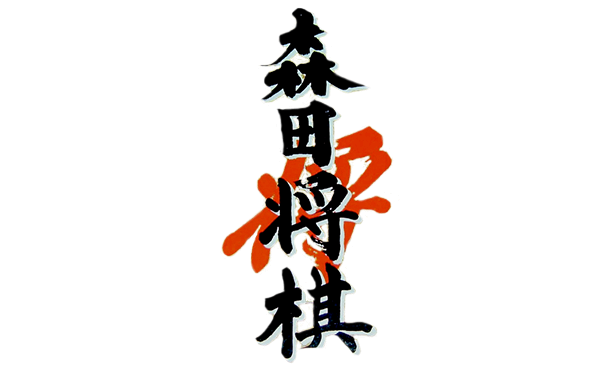 森田将棋